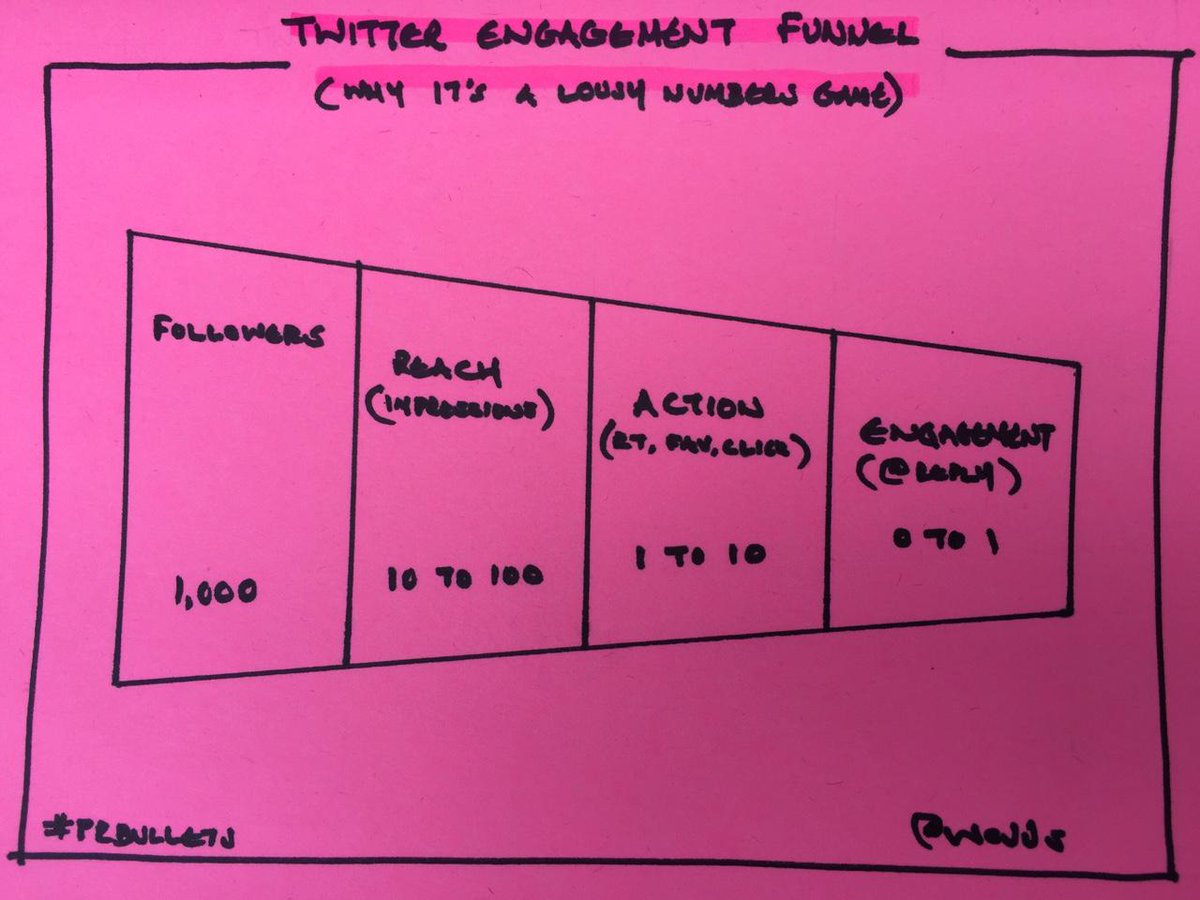 TWITTER ENGAGEMENT FUNNEL
(WHY IT'S A LOUSY NUMBERS GAME)
FOLLOWERS
1,000
REACH
(IMPRESSIONS)
10 TO 100
ACTION
(RT, FAV, CLICK)
1 TO 10
ENGAGEMENT
(@REPLY)
0 TO 1
#PRBULLETS